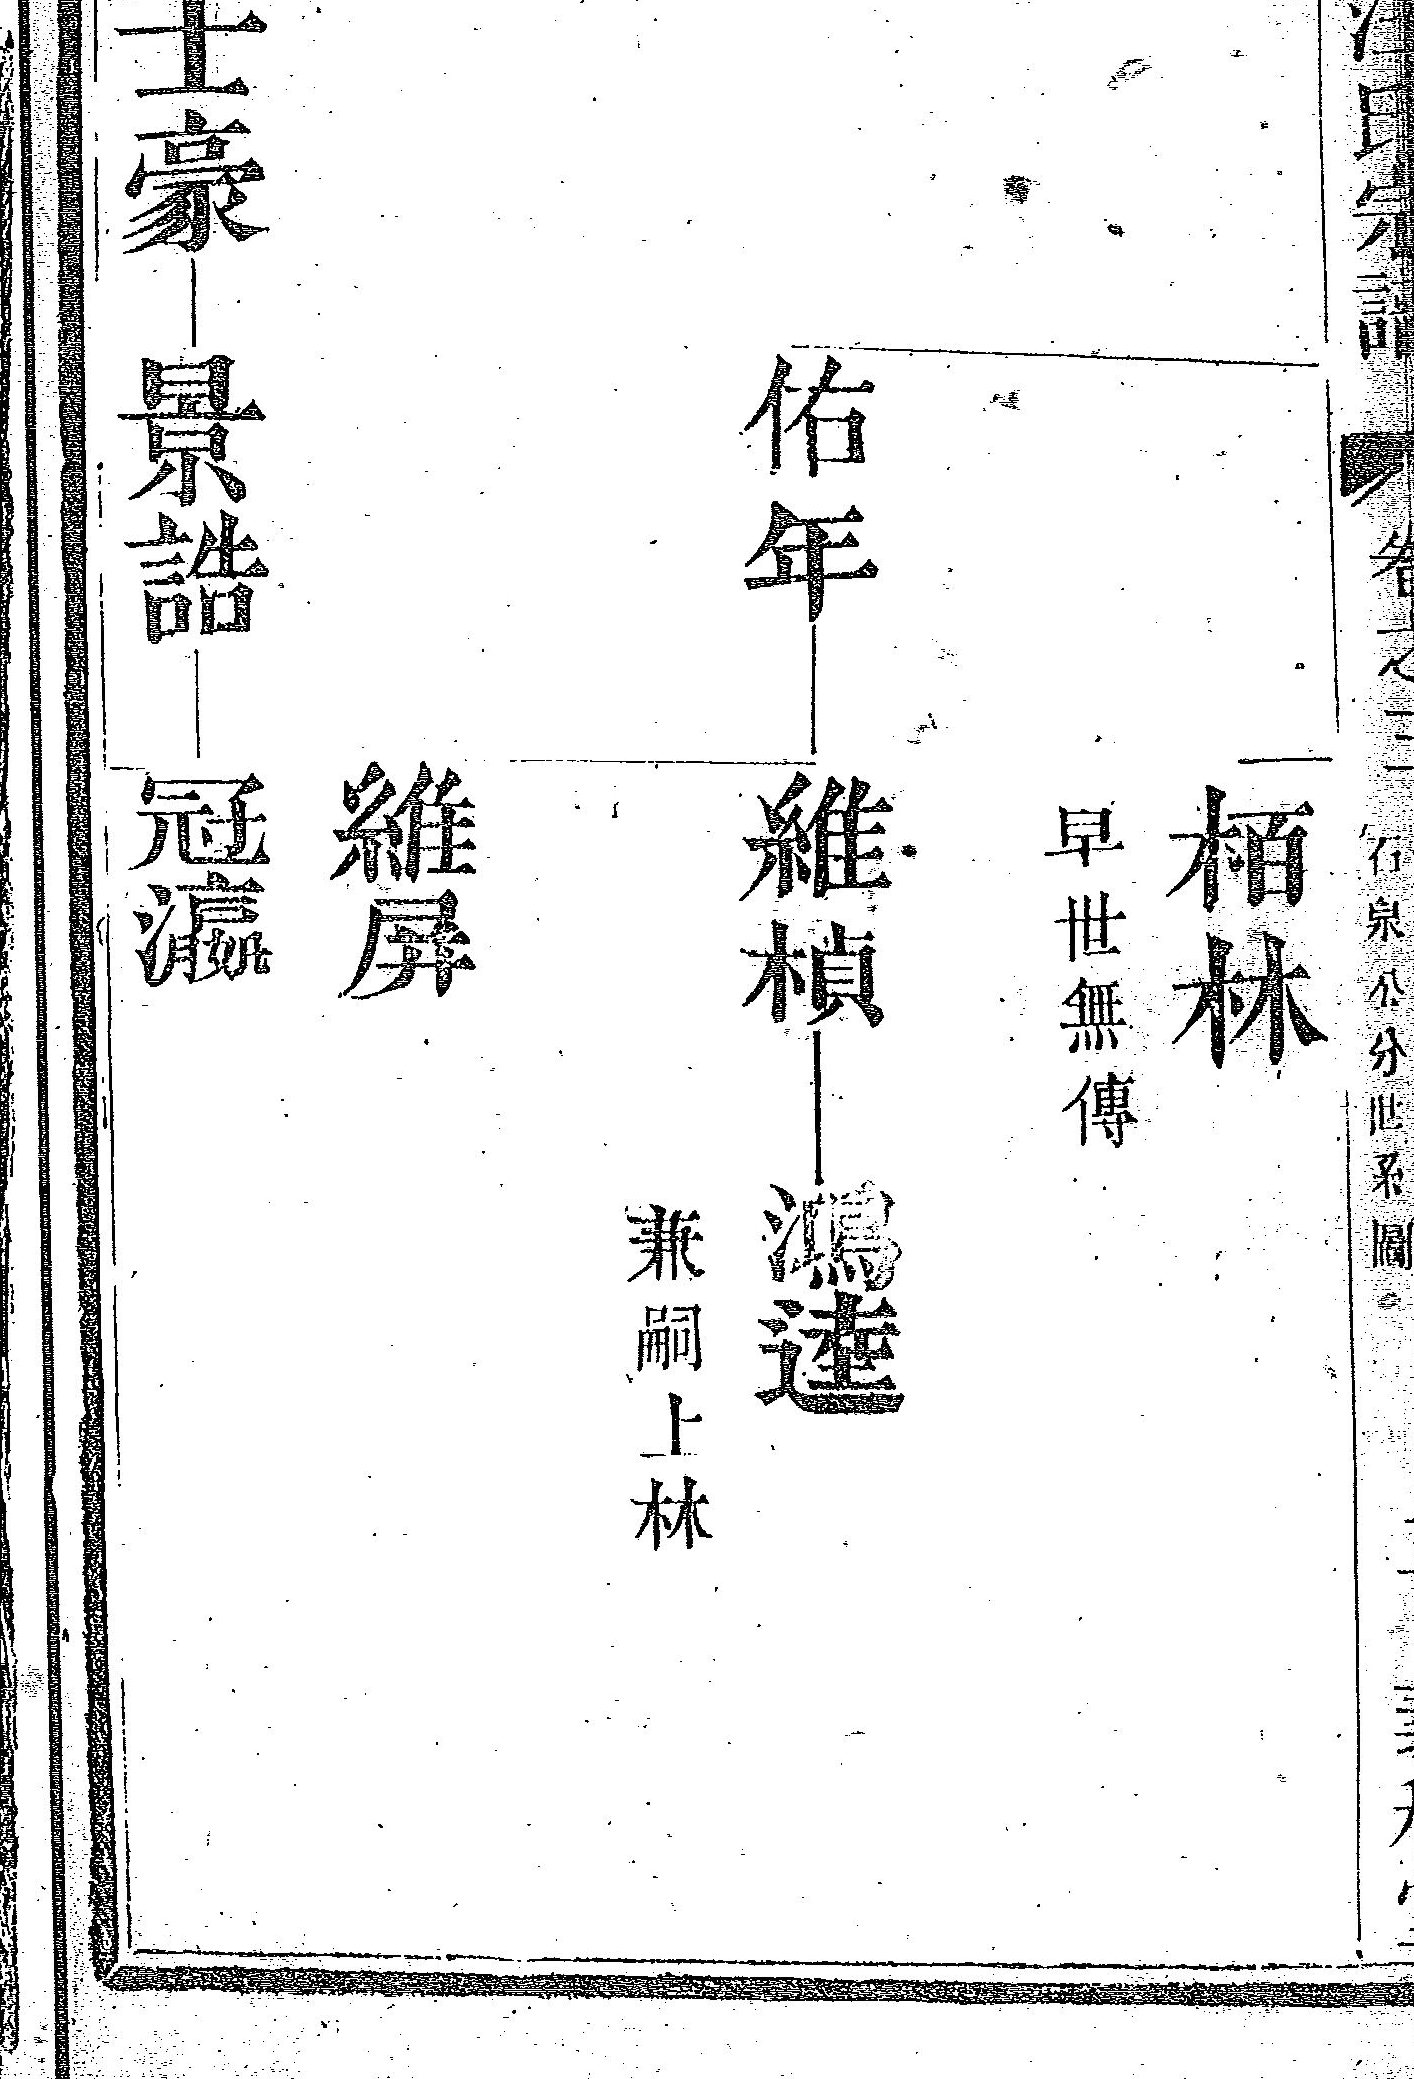 氏宗譜
卷之二
石泉公分世系圖
栢林
早世無傳
佑年
維楨
鴻逵
兼嗣上林
維屏
士豪
景誥
冠瀛